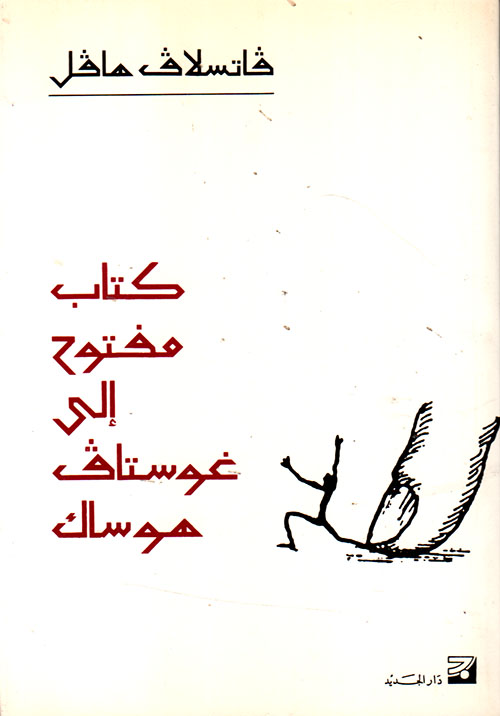 ڤاتسلاڤ هاڤل
كتاب
مفتوح
إلى
غوستاڤ
هوساك
دار الجديد